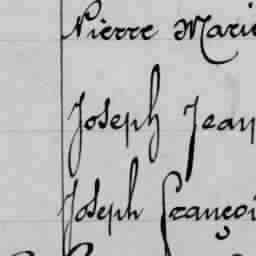 Pierre Marie
Joseph Jean
Joseph Françoi